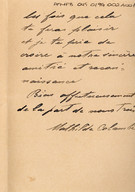 les fois que cela
te fera plaisir
et je te prie de
croire à notre sincère
amitié et recon-
naissance
Bien affectueusement
de la part de nous trois
Mathilde